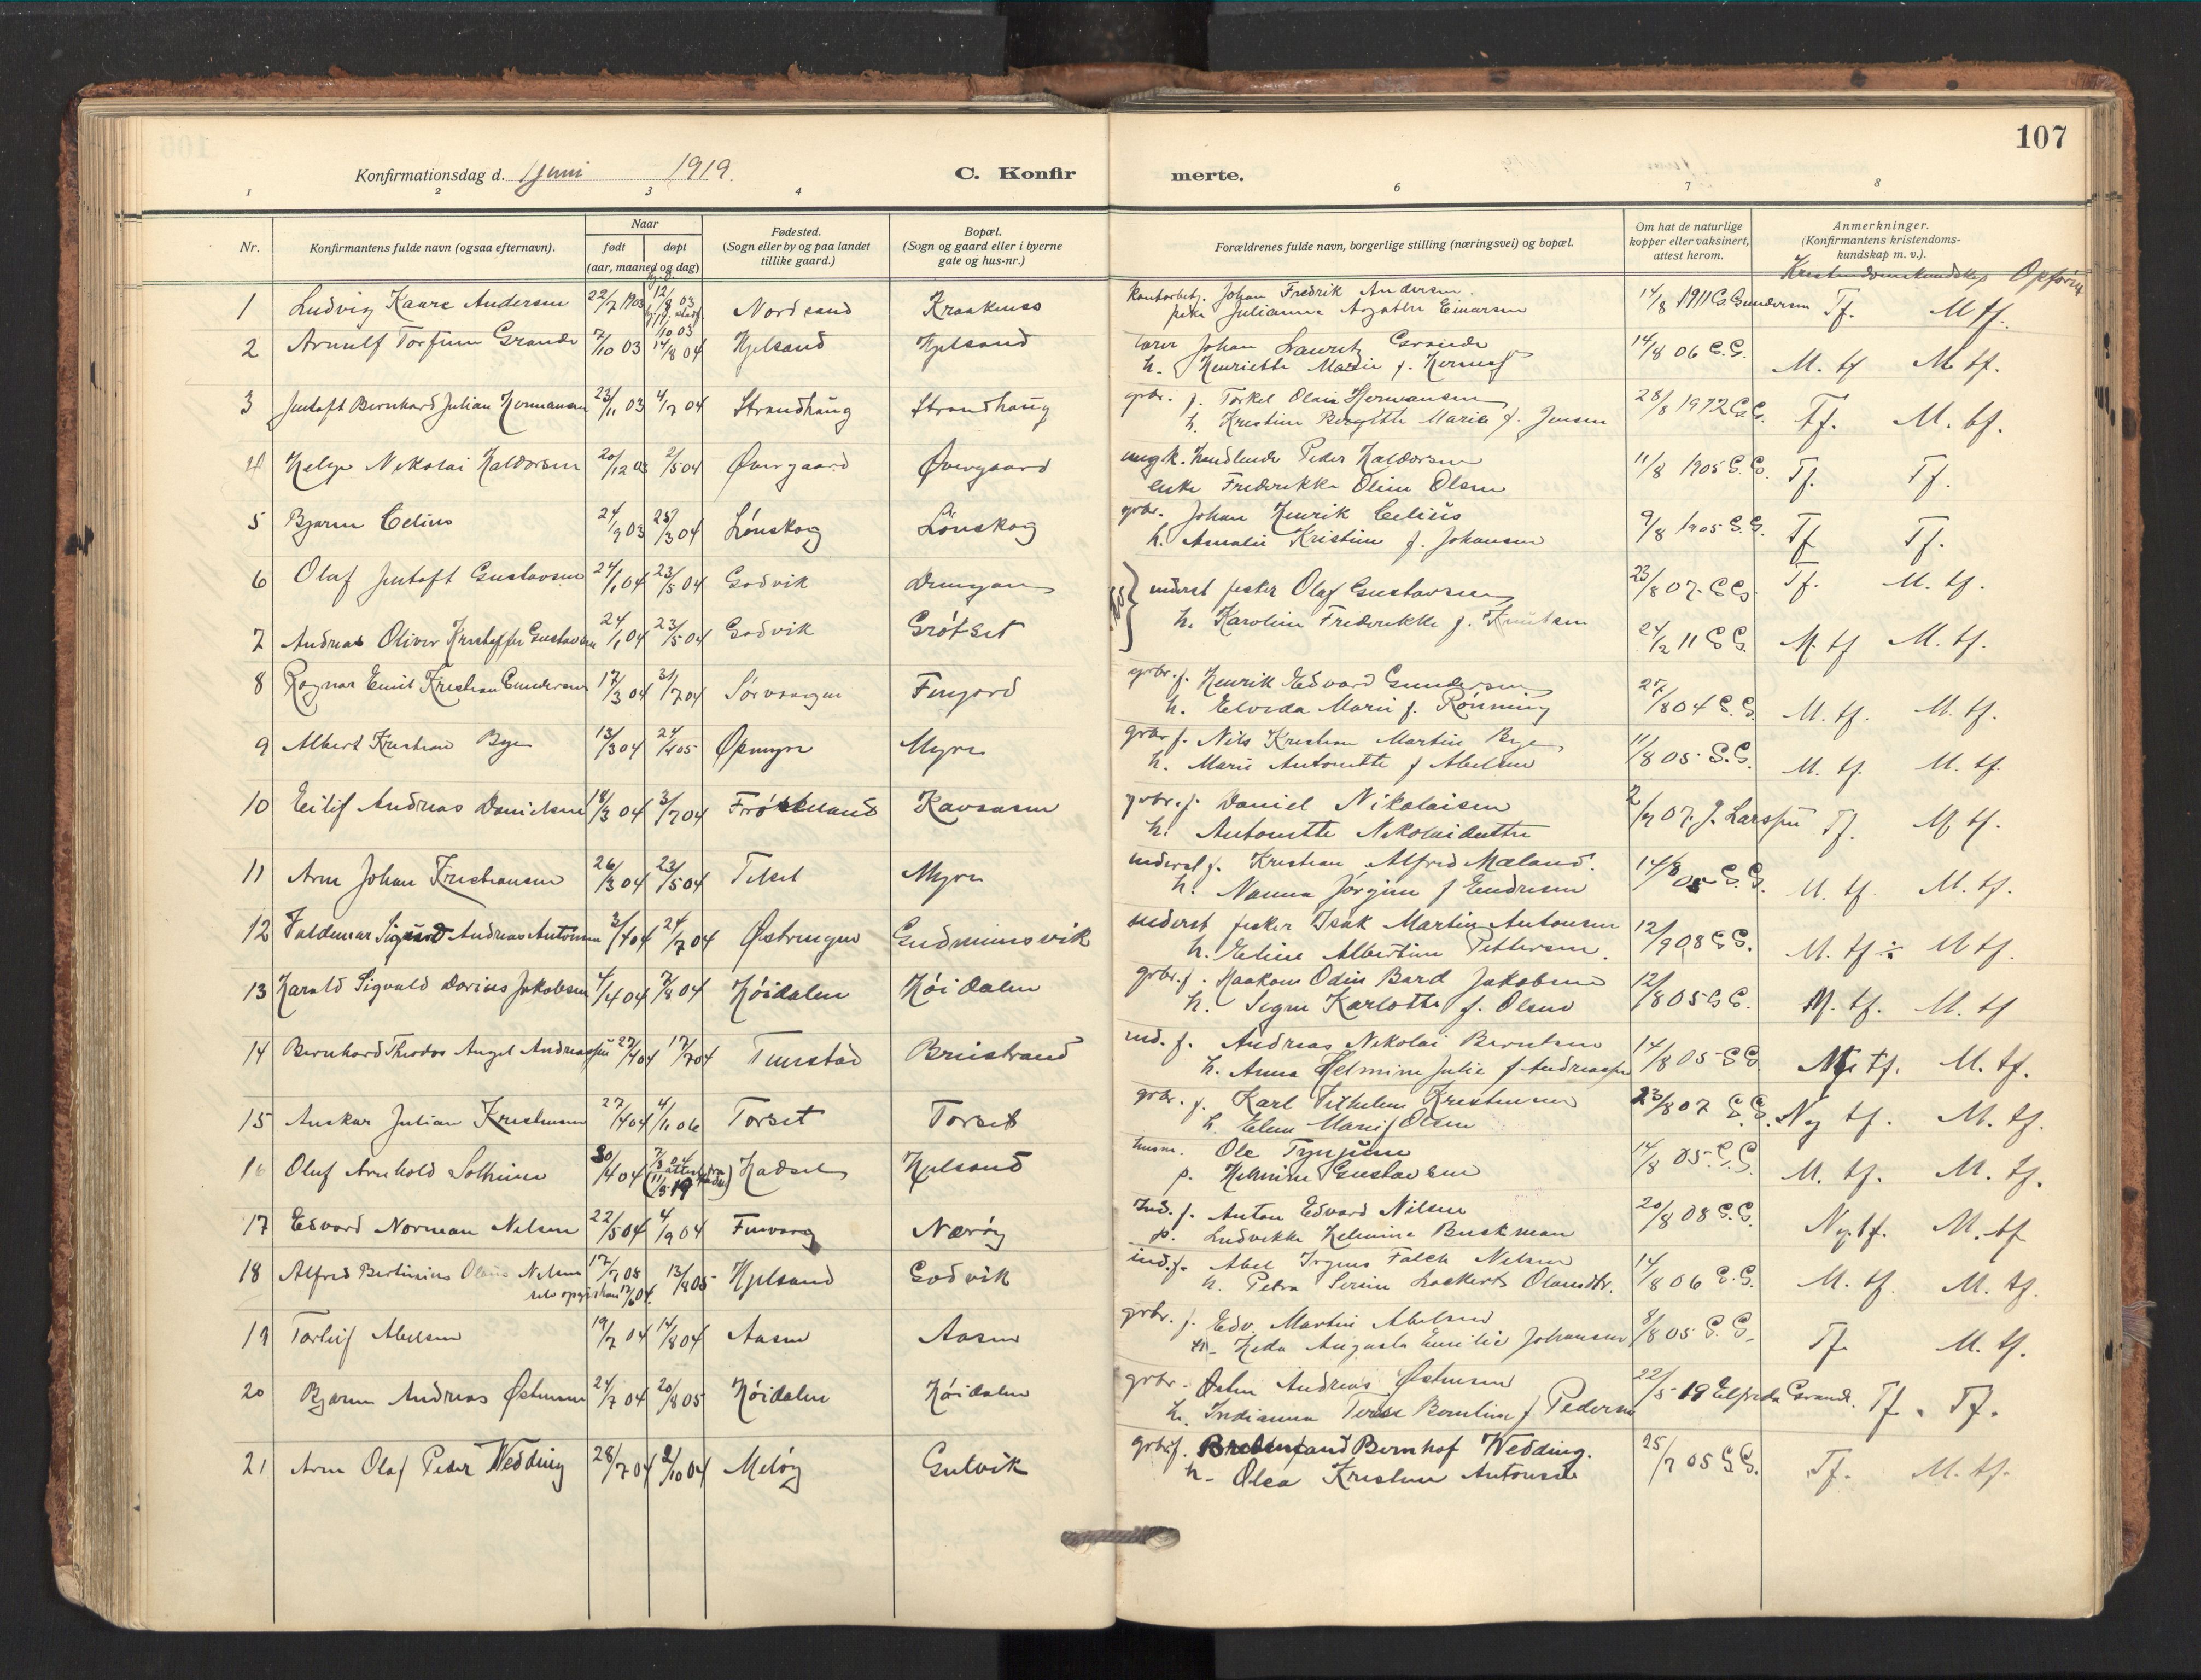 107
Konfirmationsdag d. 1 Juni 1919.
C. Konfirmerte.
1 2 3 4 6 7 8
Nr.
Konfirmantens fulde navn (ogsaa efternavn).
Naar
født døpt
(aar, maaned og dag)
Fødested.
(Sogn eller by og paa landet
tillike gaard.)
Bopæl.
(Sogn og gaard eller i byerne
gate og hus-nr.)
Forældrenes fulde navn, borgerlige stilling (næringsvei) og bopæl.
Om hat de naturlige
kopper eller vaksinert,
attest herom.
Anmerkninger.
(Konfirmantens kristendoms-
kundskap m. v.).
Kristendomskundskap Opførsel
1 Ludvig Kaare Andersen 22/7 1903 12/8 03 Nordsand Kraaknes
Johan Fredrik Andersen. 14/8 1911 G. Gundersen Tf. M tf.
pike Julianna Einarsen
2 Arnulf Torfinn Grande 7/10 03 14/8 04 Hjelsand Hjelsand
lærer Johan Lauritz Grande 14/8 06 G.G. M. tf M. tf.
h. Henriette Marie f.
3 Jentoft Bernhard Julian Hermansen 23/11 03 4/7 04 Strandhaug Strandhaug
grbr. f. Torkel Olaus Hermansen 28/8 1912 G.G. Tf. M. tf.
h. Kristine Bergitte Maria f. Jensen
4 Helge Nikolai Haldorsen 20/12 03 2/5 04 Øvergaard Øvergaard
ungk. handlende Peder Haldorsen 11/8 1905 G.G. Tf. Tf.
enke Fredrikke Oline Olsen
5 Bjarne Celius 24/9 03 25/3 04 Lónskog Lónskog
grbr. Johan Henrik Celius 9/8 1905 G.G. Tf Tf.
h. Amalie Kristine f. Johansen
6 Olaf Jentoft Gustavsen 24/1 04 23/5 04 Godvik
inderst fisker Olaf Gustavsen 23/8 07. G G. Tf. M. tf.
h. Karoline Fredrikke f. Knutsen
7 Andreas Oliver Kristoffer Gustavsen 24/1 04 23/5 04 Godvik Grótset
24/2 11 G G. M. tf M. tf.
8 Ragnar Emil Kristian Gundersen 17/3 04 31/7 04 Sørvaagen Finjord
grbr. f. Henrik Edvard Gundersen 27/8 04 G.G. M. tf. M. tf.
h. Elvida Marie f. Rónning
9 Albert Kristian Bye 13/3 04 24/4 05 Øsmyre Myre
grbr f. Nils Kristian Martin Bye 11/8 05 G.G. M. tf. M. tf.
h. Marie Antonette f Abelsen
10 Eilif Andreas Danielsen 18/3 04 3/7 04 Frøskeland Kavaasen
grbr. f. Daniel Nikolaisen 2/7 07. J. Larssen Tf. M tf.
h. Antonette Nikolaidatter
11 Arne Johan Kristiansen 26/3 04 23/5 04 Tilset Myre
inderst f. Kristian Alfred Mæland. 14/8 05 G.G. M. tf. M. tf.
h. Nanna Jørgine f Endresen
12 Valdemar Sigurd Andreas Antonsen 3/4 04 24/7 04 Østringen Gudmunsvik
inderst fisker Isak Martin Antonsen 12/9 08 G G. M. tf. M tf.
h. Eline Albertine Pettersen.
13 Harald Sigvald Darius Jakobsen 4/4 04 7/8 04 Hóidalen Hóidalen
grbr. f. Haakon Odin Bard Jakobsen 12/8 05 G G. M. tf. M. tf
h. Signe Karlotte f. Olsen
14 Bernhard Theodor Angel Andreassen 22/4 04 17/7 04 Tunstad Breistrand
ind. f. Andreas Nikolai Berntsen 14/8 05 G G. tf. M. tf.
h. Anna Helmine Julie f Andreassen
15 Anskar Julian Kristensen 27/4 04 4/1 06 Torset Torset
grbr. f. Karl Vilhelm Kristensen 23/8 07 G.G. Ng tf. M. tf.
h. Elen Marie f Olsen
16 Oluf Arnhold Solheim 30/4 04 7/8 04 (attest fra Hadsel 11/5 19) Hadsel Hjelsand
husm. Ole 14/8 05. G.G. M. tf. M. tf.
p. Helmine Gustavsen
17 Edvard Norman Nilsen 22/5 04 4/9 04 Finvaag Nærøy
Ind. f. Anton Edvard Nilsen 20/8 08 G.G. Ng. tf. M. tf
p. Ludvikke Helmine Buskman
18 Alfred Bertinius Olaus Nilsen 17/7 05 13/8 05 Hjelsand Godvik
selv opgir han 17/6 04.
ind. f. Abel Irgens Falck Nilsen 14/8 06 G.G. M. tf. M. tf.
h. Petra Serine Lockert Olausdtr.
19 Torleif Abelsen 19/7 04 14/8 04 Aasen Aasen
grbr. f. Edv. Martin Abelsen 8/8 05 G. G. Tf. M. tf.
h. Heda Augusta Emilie Johansen
20 Bjarne Andreas Østensen 24/7 04 20/8 05 Hóidalen Hóidalen
grbr. Østen Andreas Østensen 22/5 19 Elfrida Grande. Tf. Tf.
h. Indianna Terese Berntine f Pedersen
21 Arne Olaf Peder Wedding 28/7 04 2/10 04 Meløy Gulvik
grbr f. Bernhof Wedding. 25/7 05 G G. Tf. M. tf.
h. Olea Kristine Antonsen